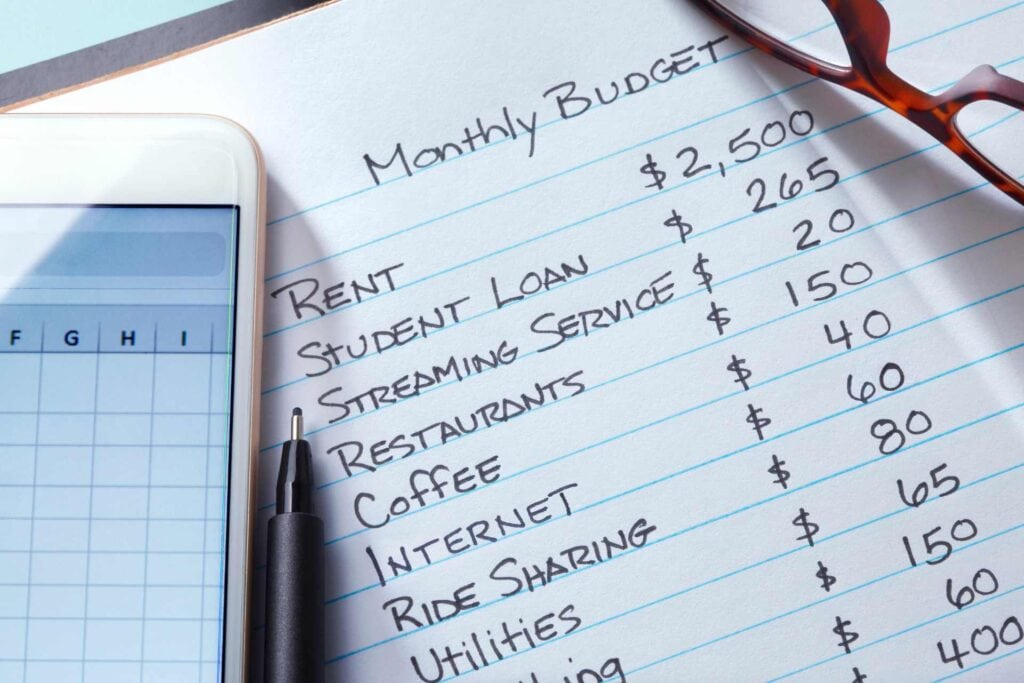 Monthly BUDGET
RENT $ 2,500
STUDENT LOAN $ 265
STREAMING SERVICE $ 20
RESTAURANTS $ 150
Coffee $ 40
INTERNET $ 60
RIDE SHARING $ 80
Utilities $ 65
$ 150
$ 60
$ 400
F G H I